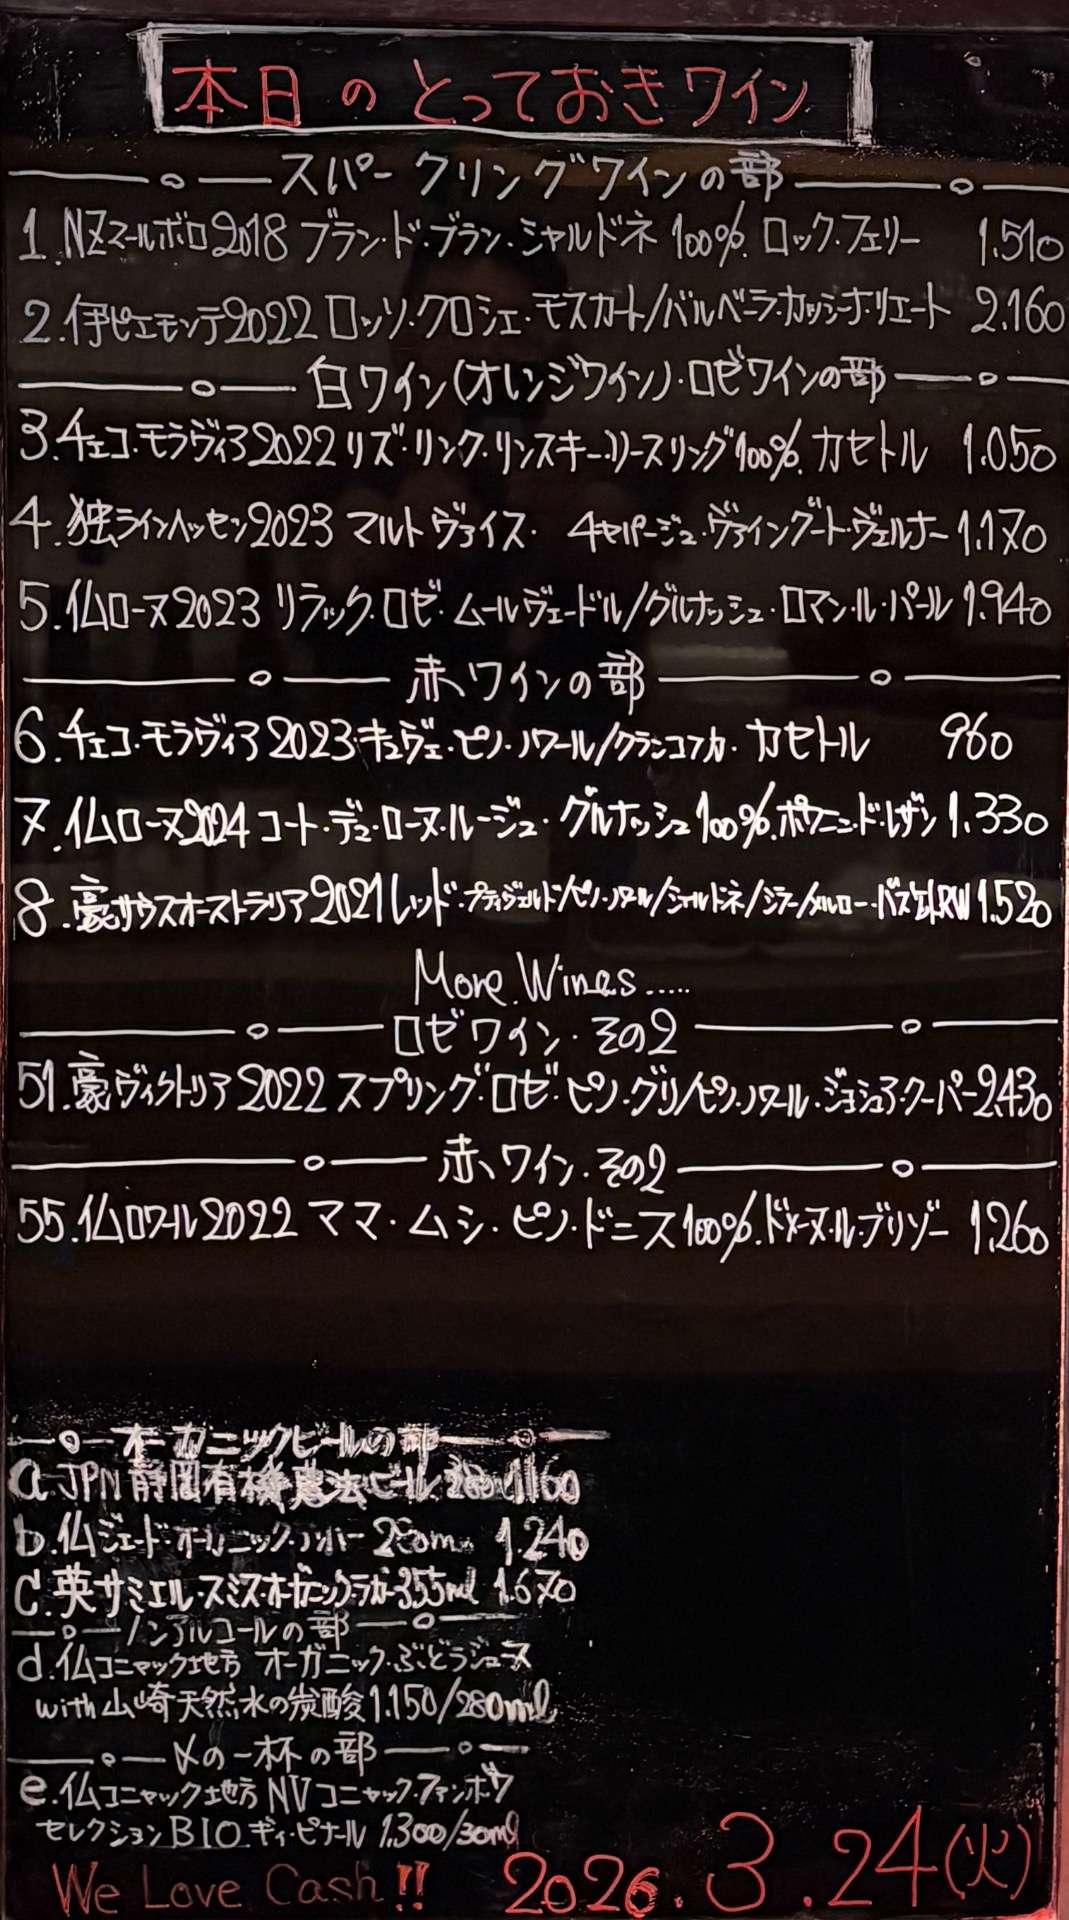 本日のとっておきワイン
スパークリングワインの部
1.NZマールボロ2018 ブラン・ド・ブラン・シャルドネ 100%.ロック・フェリー 1.510
2.伊ピエモンテ2022 ロッソ・クロシェ・モスカート/バルベーラ・カッシーナ・リエート 2.160
白ワイン(オレンジワイン)・ロゼワインの部
3.チェコ・モラヴィア2022 リズ・リンク・リンスキー・リースリング100%.カセトル 1.050
4.独ラインヘッセン2023 マルト ヴァイス・ 4セパージュ・ヴァイングート・ヴェルナー 1.170
5.仏ローヌ2023 リラック・ロゼ・ムールヴェードル/グルナッシュ・ロマン・ル・パール 1.940
赤ワインの部
6.チェコ・モラヴィア2023・キュヴェ・ピノ・ノワール/フランコフカ・カセトル 960
7.仏ローヌ2024 コート・デュ・ローヌ・ルージュ・グルナッシュ100%.ポウニー・ド・レザン 1.330
8.豪サウスオーストラリア2021 レッド・プティヴェルド/ピノ・ノワール/シャルドネ/シラー/メルロー・バスケットRW 1.520
More Wines.....
ロゼワイン・その2
51.豪ヴィクトリア2022 スプリング・ロゼ・ピノ・グリ/ピノ・ノワール・ジョシュア・クーパー 2.430
赤ワイン・その2
55.仏ロワール2022 ママ・ムシ・ピノ・ドニス100%.ドメーヌ・ル・ブリゾー 1.260
オーガニックビールの部
a.JPN 静岡有機農法ビール 1.160
b.仏ジェード・オーガニック 1.240
c.英サミエル・スミス・オーガニックラガー355ml 1.670
ノンアルコールの部
d.仏コニャック地方 オーガニック・ぶどうジュース
with 山崎天然水の炭酸 1.150/280ml
〆の一杯の部
e.仏コニャック地方 NV コニャック・ファンボワ
セレクションBIO.ギィ・ピナール 1.300/30ml
We Love Cash!! 2026.3.24(火)